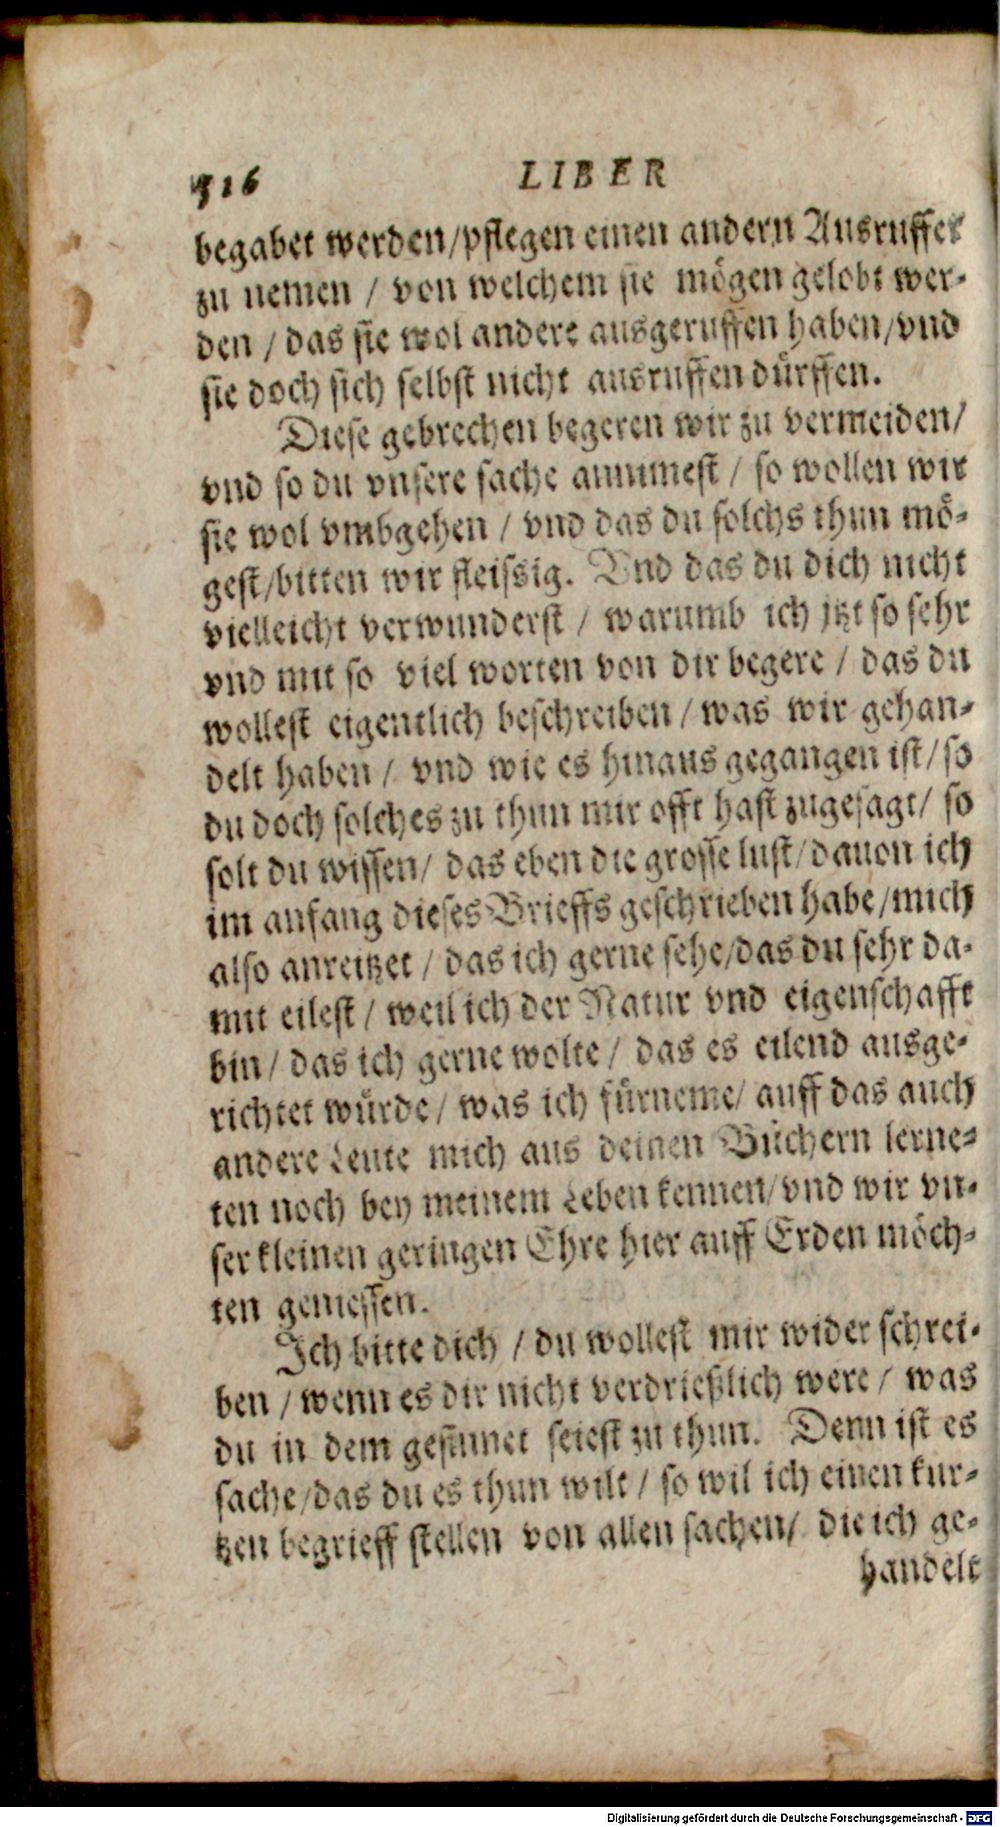 516 LIBER
begabet werden/pflegen einen andern Ausruffer
zu nemen / von welchem sie mögen gelobt wer-
den / das sie wol andere ausgeruffen haben/vnd
sie doch sich selbst nicht ausruffen dürffen.
Diese gebrechen begeren wir zu vermeiden/
vnd so du vnsere sache annimest / so wollen wir
sie wol vmbgehen / vnd das du solchs thun mö-
gest/bitten wir fleissig. Vnd das du dich nicht
vielleicht verwunderst / warumb ich jtzt so sehr
vnd mit so viel worten von dir begere / das du
wollest eigentlich beschreiben / was wir gehan-
delt haben / vnd wie es hinaus gegangen ist/ so
du doch solches zu thun mir offt hast zugesagt/ so
solt du wissen/ das eben die grosse lust/dauon ich
im anfang dieses Brieffs geschrieben habe/mich
also anreitzet / das ich gerne sehe/das du sehr da-
mit eilest / weil ich der Natur vnd eigenschafft
bin / das ich gerne wolte / das es eilend ausge-
richtet würde / was ich fürneme/ auff das auch
andere Leute mich aus deinen Büchern lerne-
ten noch bey meinem Leben kennen/vnd wir vn-
ser kleinen geringen Ehre hier auff Erden möch-
ten geniessen.
Ich bitte dich / du wollest mir wider schrei-
ben / wenn es dir nicht verdrießlich were / was
du in dem gesinnet seiest zu thun. Denn ist es
sache/das du es thun wilt / so wil ich einen kur-
tzen begrieff stellen von allen sachen/ die ich ge-
handelt
Digitalisierung gefördert durch die Deutsche Forschungsgemeinschaft - DFG